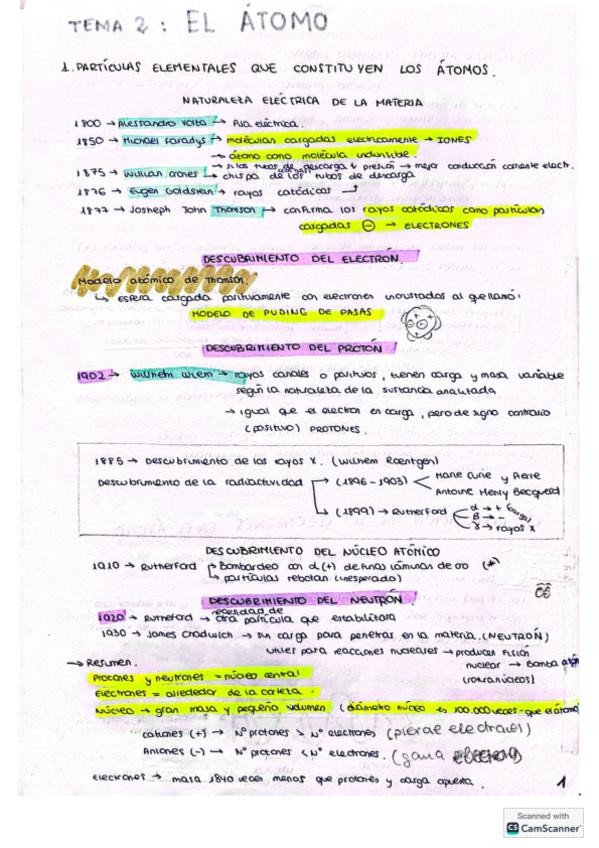 TEMA 2 : EL ÁTOMO
1. PARTÍCULAS ELEMENTALES QUE CONSTITUYEN LOS ÁTOMOS.
NATURALEZA ELÉCTRICA DE LA MATERIA
1800 → Alessandro Volta → Pila eléctrica.
1850 → Michael Faradys → moléculas cargadas electricamente → IONES
→ átomo como molécula indivisible.
→ si los tubos de descarga ↓ presión → mejor conducción corriente electr.
1875 → William Crones → chispa de los tubos de descarga
1876 → Eugen Goldstein → rayos catódicos
1877 → Josheph John Thomson → confirma los rayos catódicos como partículas
cargadas ⊖ → ELECTRONES
DESCUBRIMIENTO DEL ELECTRÓN.
Modelo atómico de Thomson.
↳ esfera cargada positivamente con electrones incrustados al que llamó:
MODELO DE PUDING DE PASAS
DESCUBRIMIENTO DEL PROTÓN
1902 → Wilhelm Wiem → rayos canales o positivos, tienen carga y masa variable
según la naturaleza de la sustancia analizada
→ igual que el electron en carga, pero de signo contrario
(positivo) PROTONES.
1885 → Descubrimento de los rayos X. (Wilhelm Roentgen)
Descubrimento de la radiactividad → (1896-1903) < Marie Curie y Pierre
Antoine Henry Becquerel
→ (1899) → Rutherford α → + (carga)
β → -
γ → rayos X
DESCUBRIMIENTO DEL NÚCLEO ATÓMICO
1910 → Rutherford → Bombardeo con α (+) de finas láminas de oro (*)
↳ partículas rebotan (inesperado)
DESCUBRIMIENTO DEL NEUTRÓN.
1920 → Rutheford → necesidad de otra partícula que estabilizara
1930 → James Chadwich → sin carga para penetrar en la materia. (NEUTRÓN)
utiles para reacciones nucleares → producen FISIÓN
nuclear → Bomba
→ Resumen.
Protones y neutrones = núcleo central
Electrones = alrededor de la corteza.
Núcleo → gran masa y pequeño volumen (diámetro núcleo es 100.000 veces - que el átomo)
cationes (+) → Nº protones > Nº electrones (pierde electrones)
Aniones (-) → Nº protones < Nº electrones. (gana electrones)
electrones → masa 1840 veces menos que protones y carga opuesta.
1
Scanned with
CS CamScanner